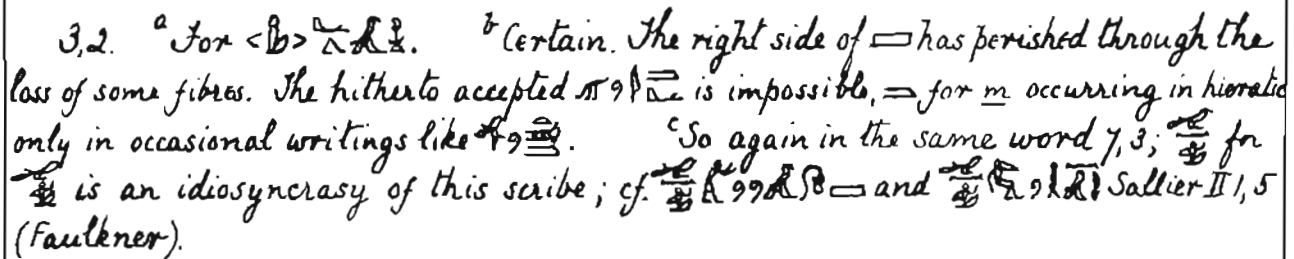 3,2. ᵃ For < > . ᵇ Certain. The right side of has perished through the
loss of some fibres. The hitherto accepted is impossible, for m occurring in hieratic
only in occasional writings like . ᶜ So again in the same word 7,3; for
is an idiosyncrasy of this scribe; cf. and Sallier II 1,5
(Faulkner).